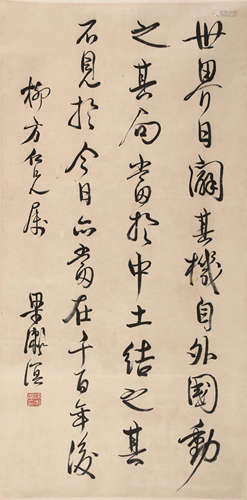 世界日闢其機自外國動
之其局當於中土結之其
不見於今日亦當在千百年後
柳方仁兄屬
梁漱溟